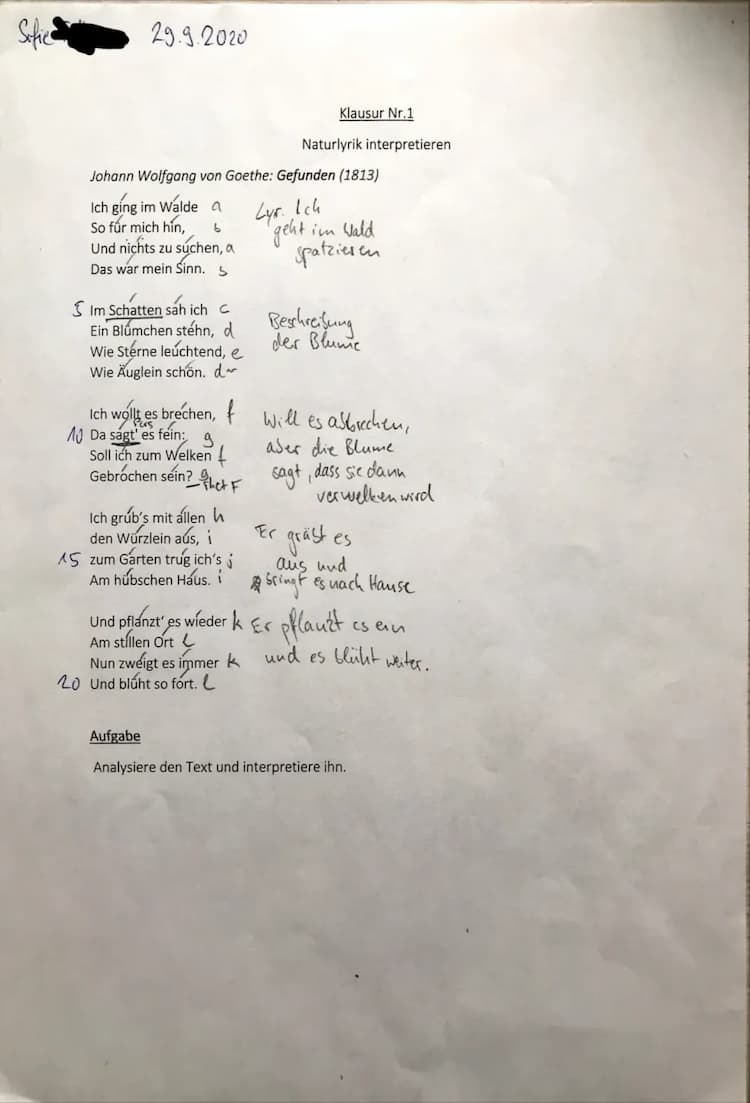 Sofie 29.9.2020
Klausur Nr.1
Naturlyrik interpretieren
Johann Wolfgang von Goethe: Gefunden (1813)
Ich ging im Walde a Lyr. Ich
So für mich hin, b geht im Wald
Und nichts zu suchen, a spatzieren
Das war mein Sinn. b
5 Im Schatten sah ich c Beschreibung
Ein Blümchen stehn, d der Blume
Wie Sterne leuchtend, e
Wie Äuglein schön. d
Ich wollt es brechen, f Will es abbrechen,
Pers
10 Da sagt' es fein: g aber die Blume
Soll ich zum Welken f sagt, dass sie dann
Gebrochen sein? g verwelken wird
rhet F
Ich grub's mit allen h Er gräbt es
den Würzlein aus, i aus und
15 zum Garten trug ich's j bringt es nach Hause
Am hübschen Haus. i
Und pflanzt' es wieder k Er pflanzt es ein
Am stillen Ort l und es blüht weiter.
Nun zweigt es immer k
20 Und blüht so fort. l
Aufgabe
Analysiere den Text und interpretiere ihn.